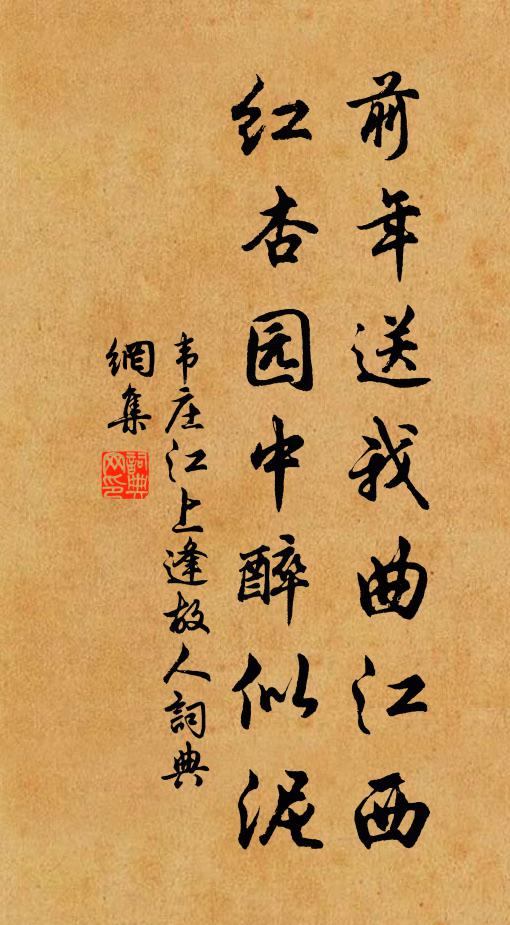 前年送我曲江西
红杏园中醉似泥
韦庄江上逢故人詞典
網集
詞典
网印